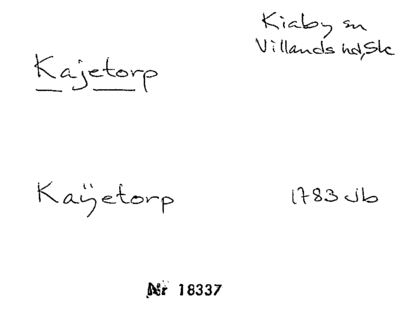 Kiaby sn
Villands hd, Sk
Kajetorp
Kaÿetorp
1783 Jb
Nr 18337